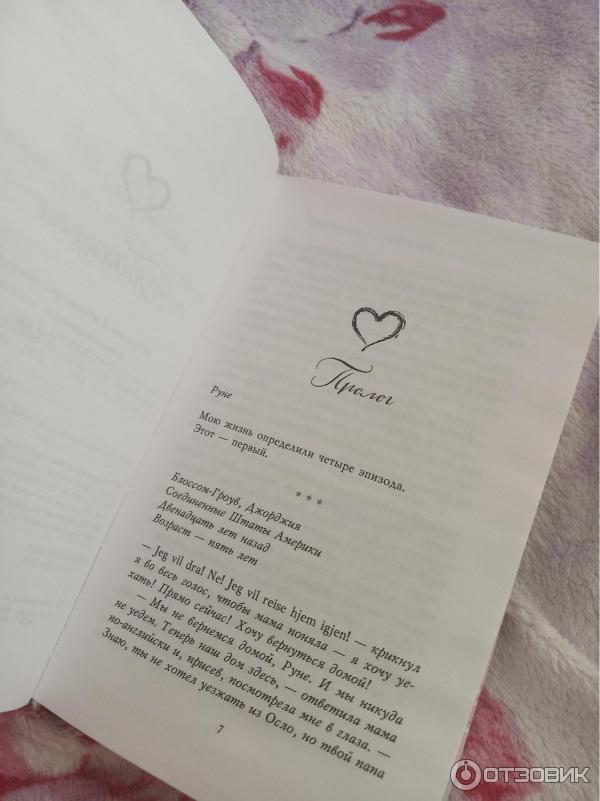 Пролог
Руне
Мою жизнь определили четыре эпизода.
Этот — первый.
* * *
Блоссом-Гроув, Джорджия
Соединенные Штаты Америки
Двенадцать лет назад
Возраст — пять лет
— Jeg vil dra! Ne! Jeg vil reise hjem igjen! — крикнул
я во весь голос, чтобы мама поняла — я хочу уе-
хать! Прямо сейчас! Хочу вернуться домой!
— Мы не вернемся домой, Руне. И мы никуда
не уедем. Теперь наш дом здесь, — ответила мама
по-английски и, присев, посмотрела мне в глаза. —
Знаю, ты не хотел уезжать из Осло, но твой папа
7
ОТЗОВИК